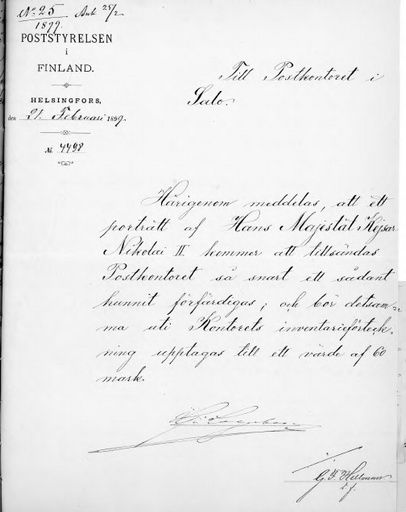 No 25 Ank 25/2
1899.
POSTSTYRELSEN
i
FINLAND.
HELSINGFORS,
den 21 Februari 1899.
№ 4498
Till Postkontoret i
Salo.
Härigenom meddelas, att ett
porträtt af Hans Majestät Kejsar
Nikolai II kommer att tillsändas
Postkontoret så snart ett sådant
hunnit förfärdigas; och bör detsam-
ma uti Kontorets inventarieförteck-
ning upptagas till ett värde af 60
mark.